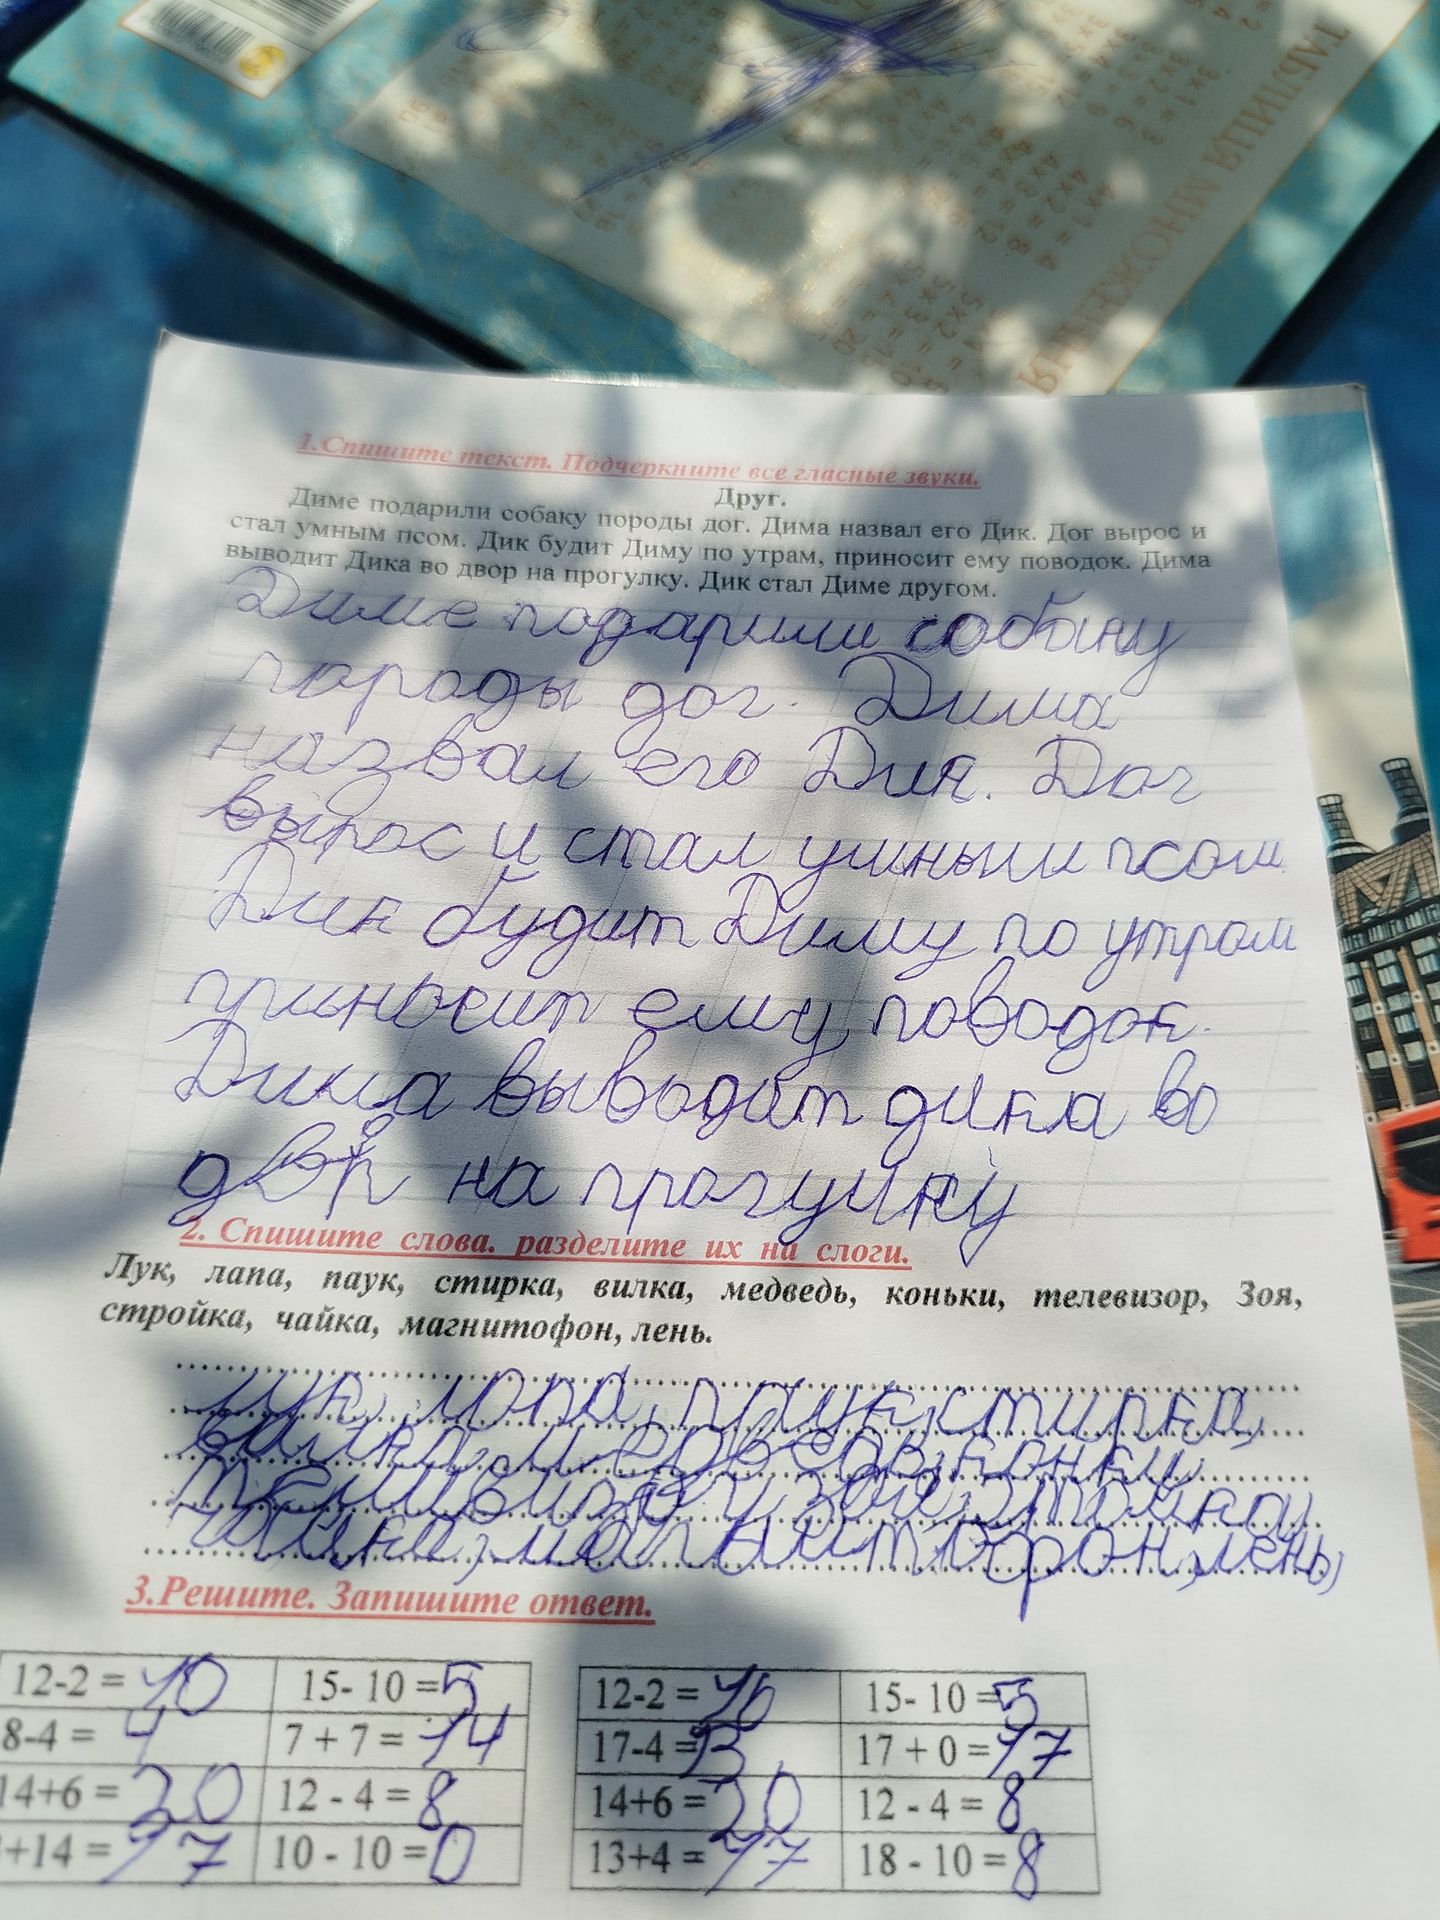 ТАБЛИЦА УМНОЖЕНИЯ
3x1 = 3
3x2 = 6
3x3 = 9
3x4 = 12
4x1 = 4
4x2 = 8
4x3 = 12
1.Спишите текст. Подчеркните все гласные звуки.
Друг.
Диме подарили собаку породы дог. Дима назвал его Дик. Дог вырос и
стал умным псом. Дик будит Диму по утрам, приносит ему поводок. Дима
выводит Дика во двор на прогулку. Дик стал Диме другом.
Диме подарили собаку
породы дог. Дима
назвал его Дик. Дог
вырос и стал умным псом
Дик будит Диму по утром
приносит ему поводок.
Дима выводит дика во
двор на прогулку
2. Спишите слова. разделите их на слоги.
Лук, лапа, паук, стирка, вилка, медведь, коньки, телевизор, Зоя,
стройка, чайка, магнитофон, лень.
лук, лопа, паук, стирка,
вилка, медведь, конки
3.Решите. Запишите ответ.
12-2 = 10 15- 10 =5 12-2 = 10 15- 10 =5
8-4 = 4 7 + 7 = 14 17-4 =13 17 + 0 =17
14+6 = 20 12 - 4 = 8 14+6 = 20 12 - 4 = 8
+14 = 17 10 - 10 =0 13+4 = 17 18 - 10 = 8